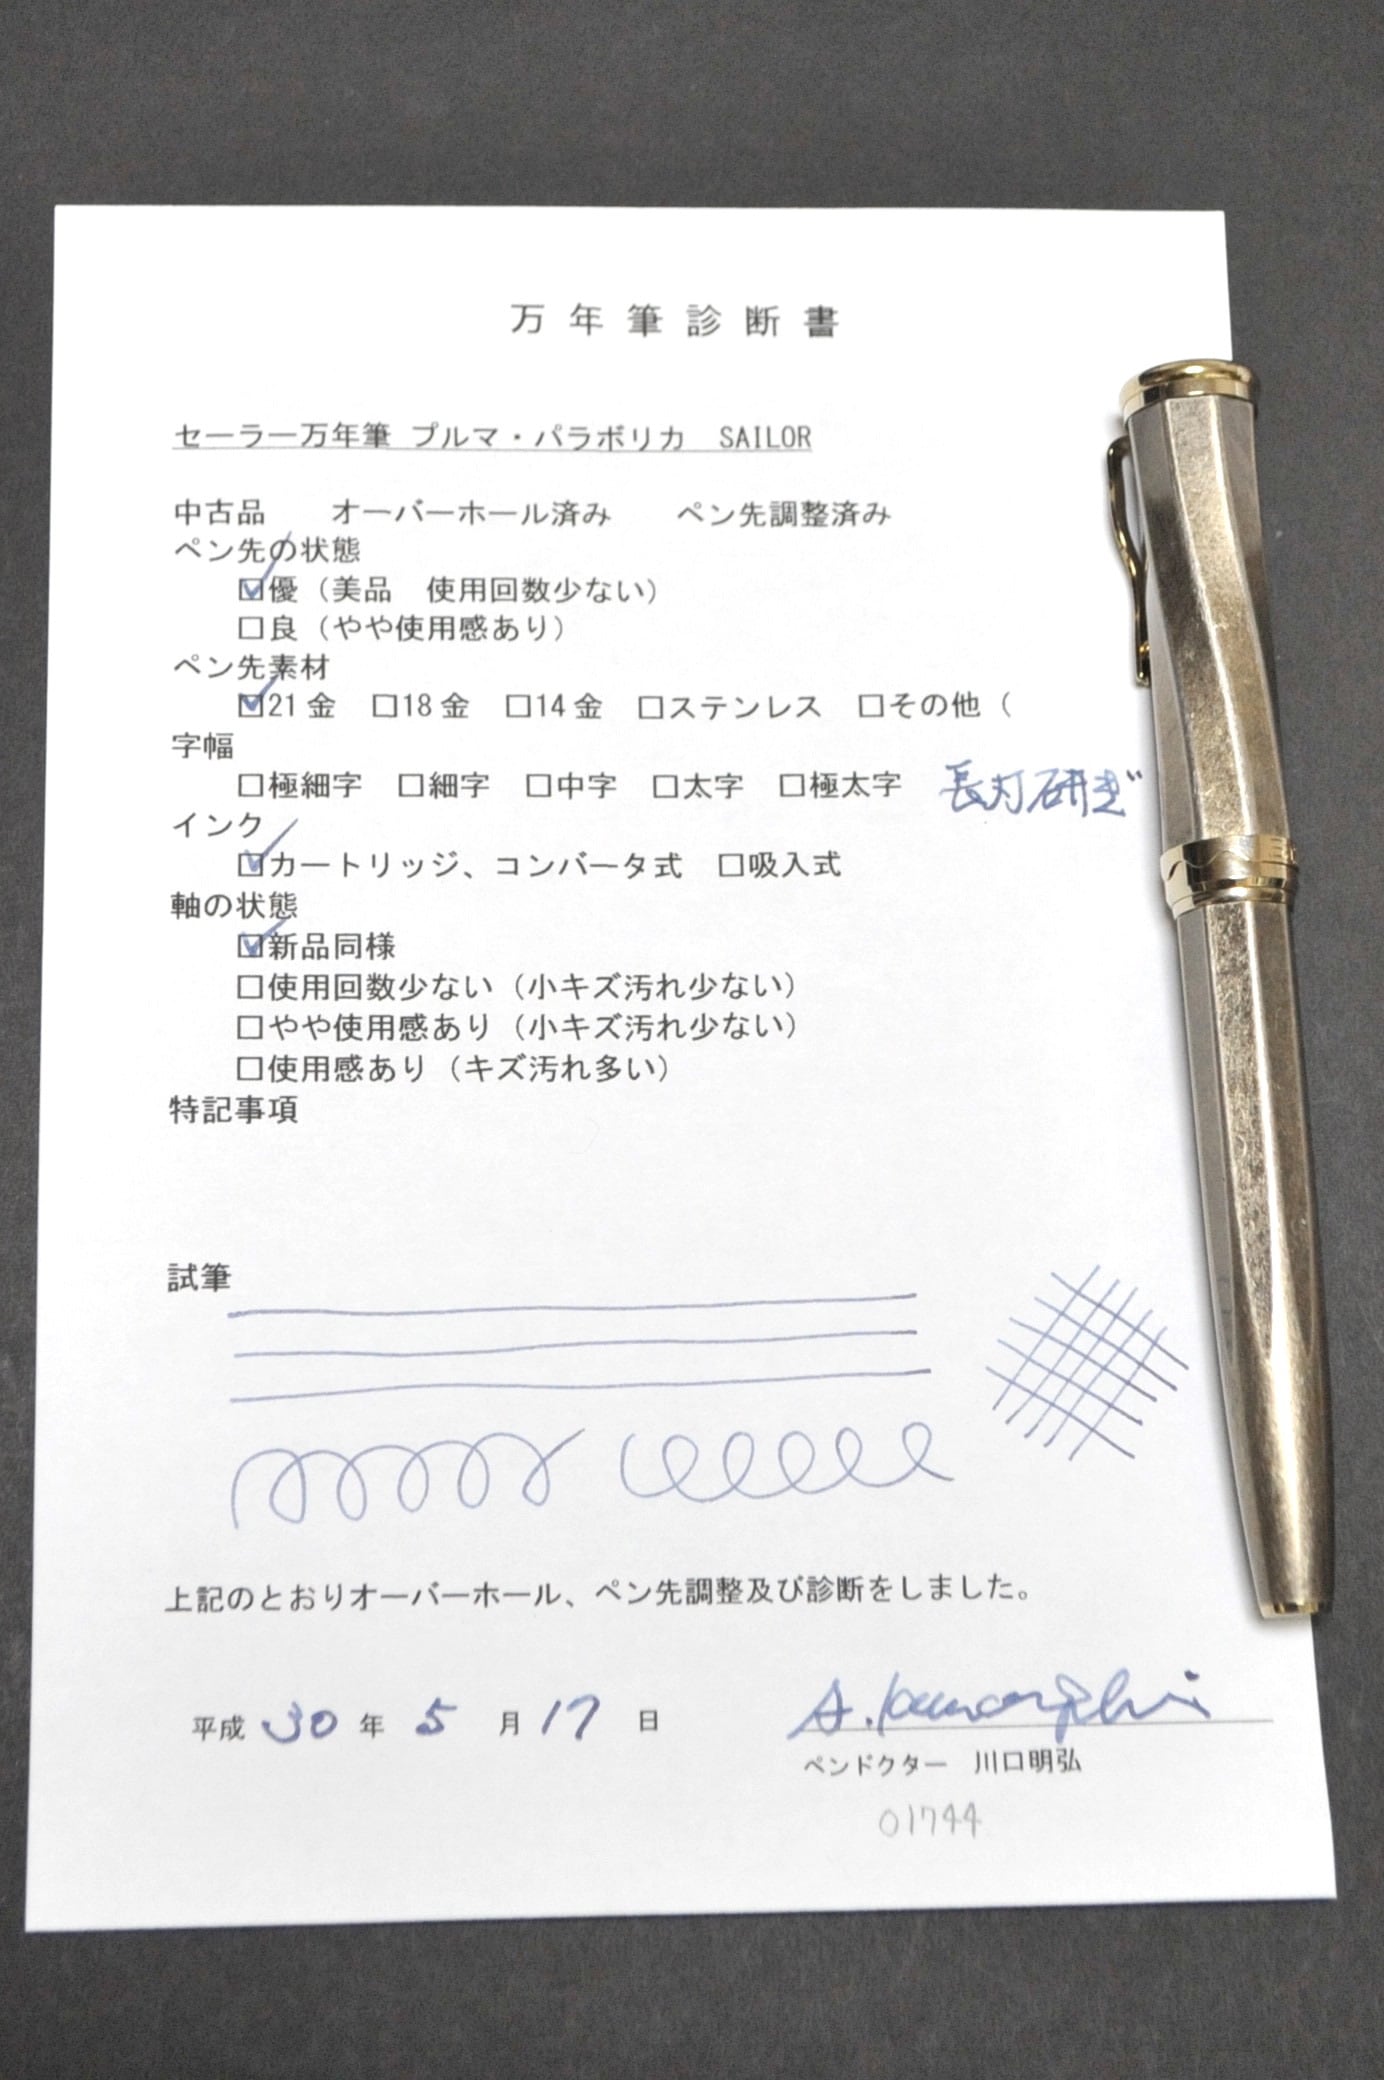 万年筆診断書
セーラー万年筆 プルマ・パラボリカ SAILOR
中古品 オーバーホール済み ペン先調整済み
ペン先の状態
☑優（美品 使用回数少ない）
□良（やや使用感あり）
ペン先素材
☑21金 □18金 □14金 □ステンレス □その他（
字幅
□極細字 □細字 □中字 □太字 □極太字 長刀研ぎ
インク
☑カートリッジ、コンバータ式 □吸入式
軸の状態
☑新品同様
□使用回数少ない（小キズ汚れ少ない）
□やや使用感あり（小キズ汚れ少ない）
□使用感あり（キズ汚れ多い）
特記事項
試筆
上記のとおりオーバーホール、ペン先調整及び診断をしました。
平成 30 年 5 月 17 日
ペンドクター 川口明弘
01744